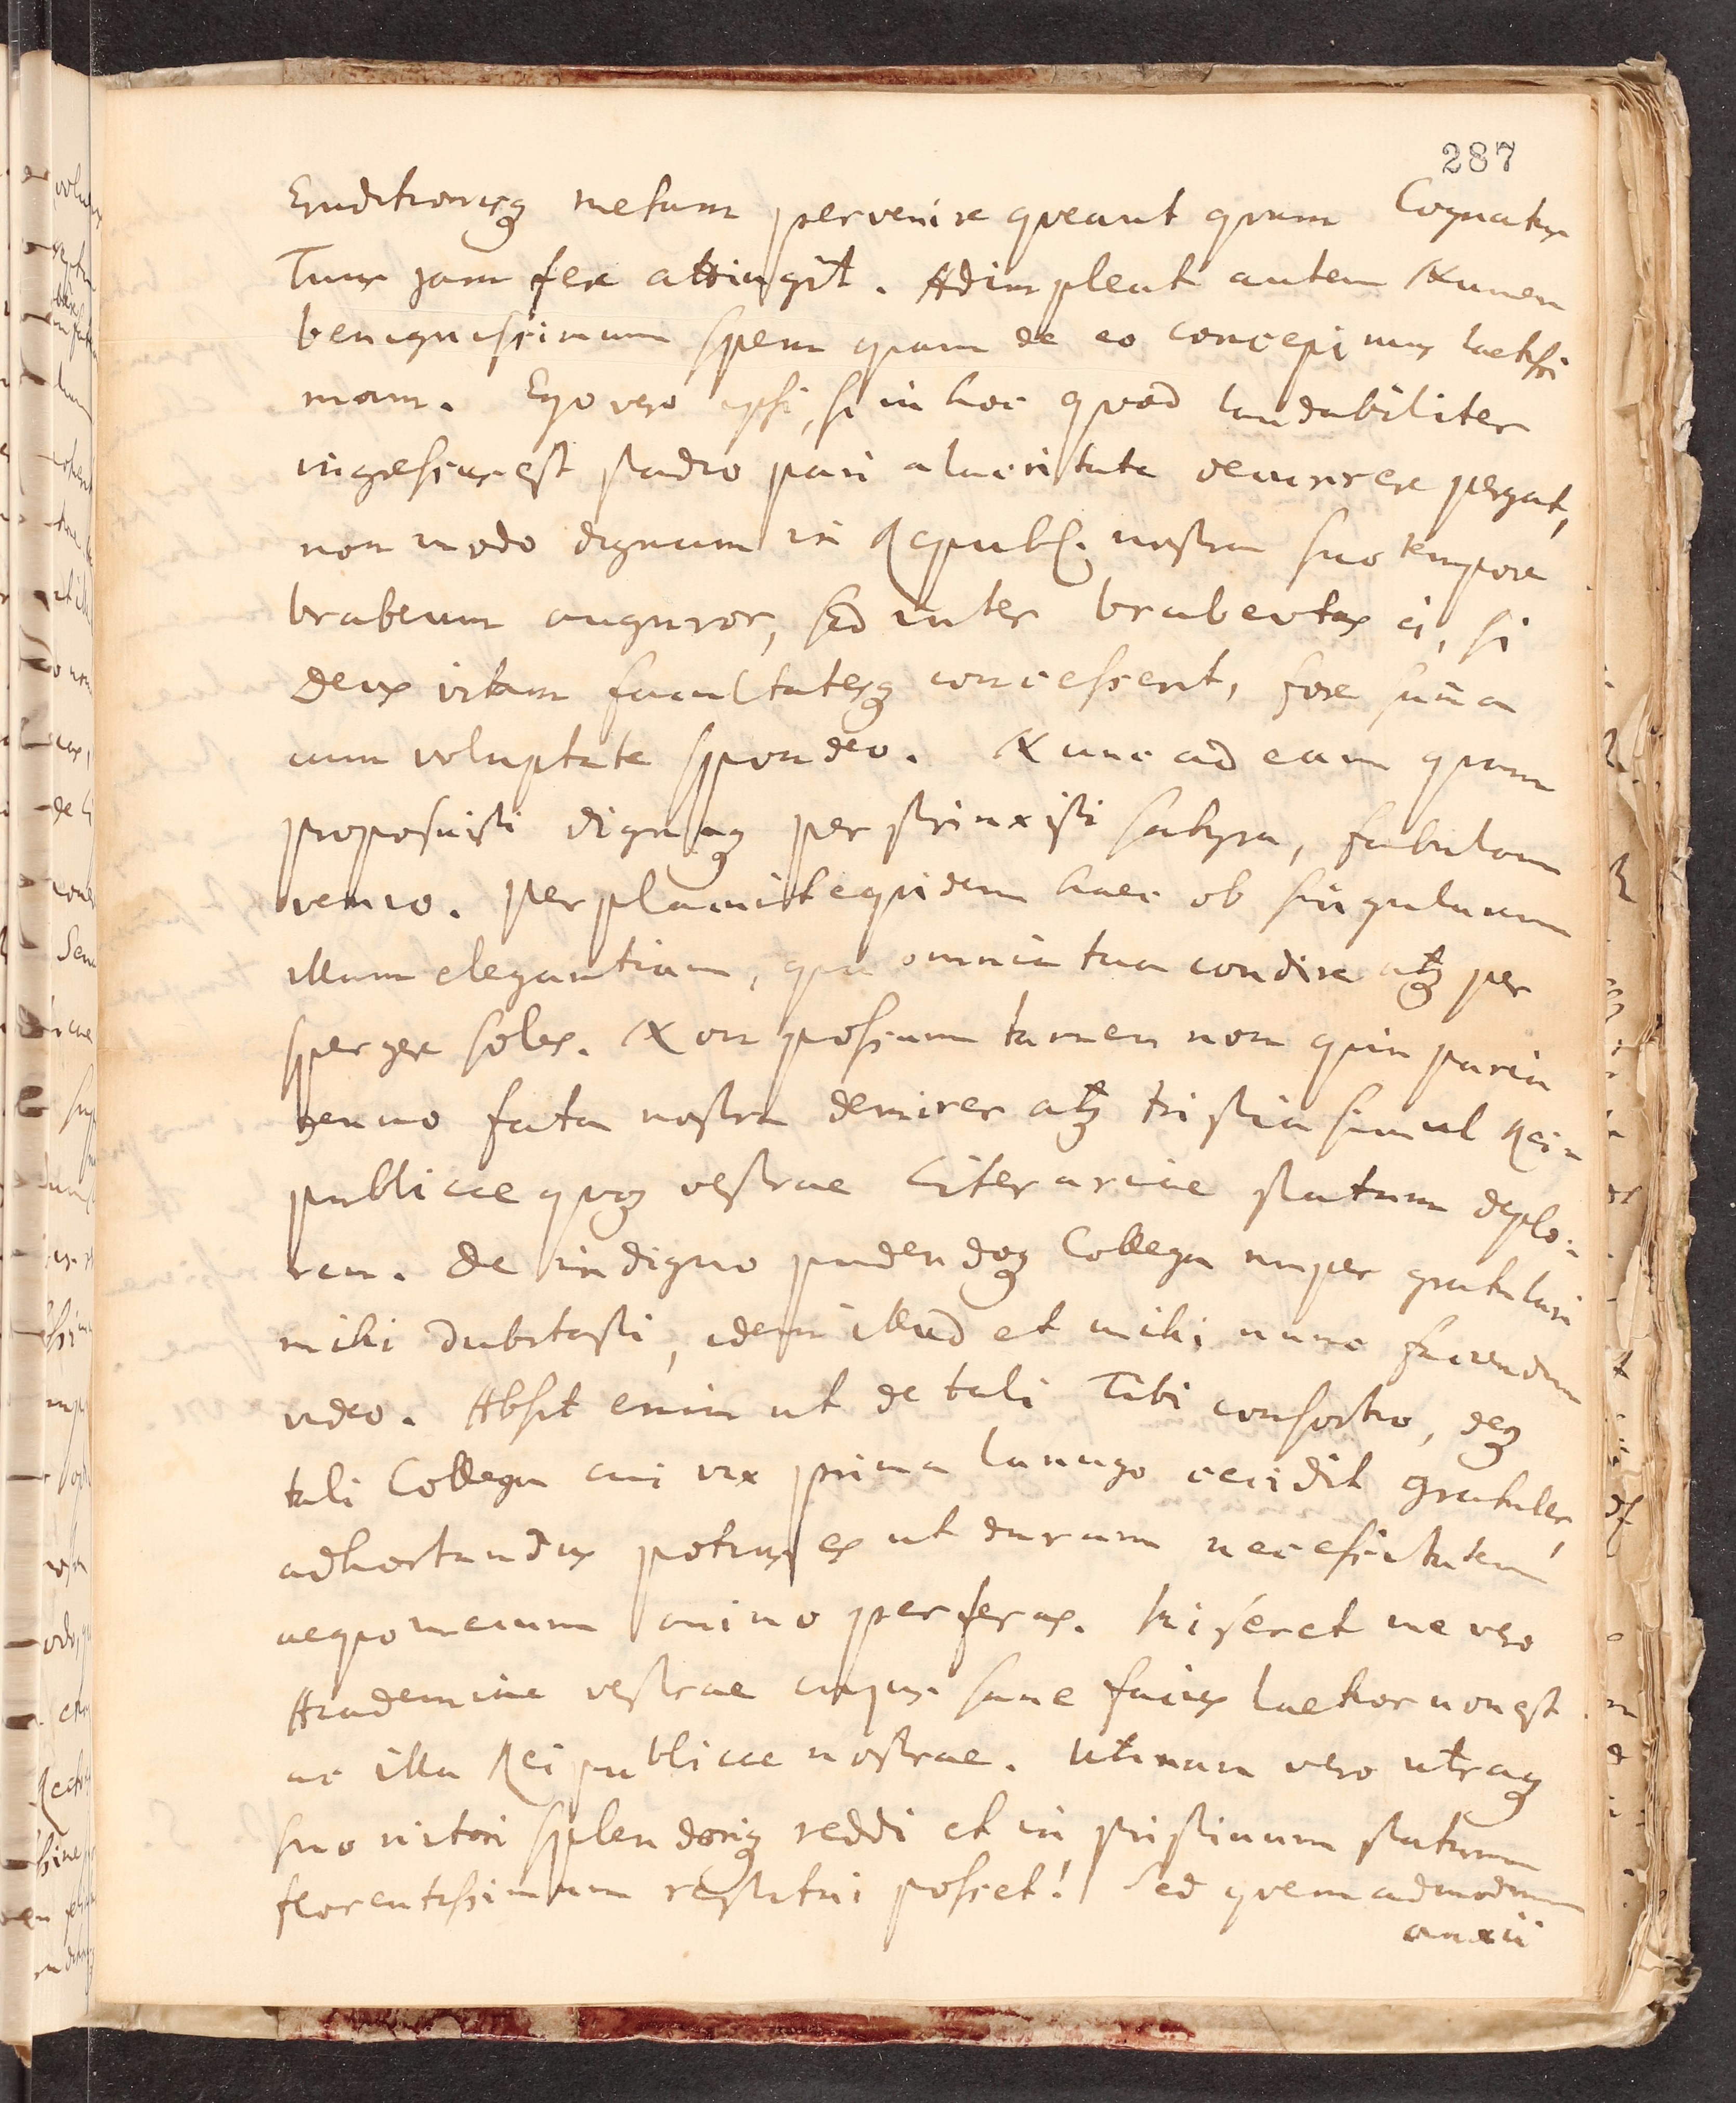 287
Eruditionisq; metam pervenire qveant qvam Cognatus
Tuus jam fere attingit. Adimpleat autem Numen
benignissimum spem qvam de eo concepimus laetissi
mam. Ego vero ipsi, si in hoc qvod laudabiliter
ingressus est stadio pari alacritate decurrere pergat,
non modo dignum in Republ. nostra suo tempore
brabeum auguror, sed inter brabeutas ei, si
Deus vitam facultatesq; concesserit, fore sum̄a
cum voluptate spondeo. Nunc ad eam qvam
proposuisti dignaq; perstrinxisti satyra, fabulam
venio. Perplacuit eqvidem haec ob singularem
illam elegantiam, qva omnia tua condire atq; per
spergere soles. Non possum tamen non qvin paria
genuo fata nostra demirer atq; tristia simul Rei-
publicae qvoq; vestrae Literariae statum deplo-
rem. De indigno pudendoq; Collega nuper gratulari
mihi dubitasti, idem illud et mihi nunc faciendum
video. Absit enim ut de tali Tibi consortio, deq;
tali Collega cui vix prima lanugo cecidit gratuler,
adhortandus potius es ut duram necessitatem
aeqvo mecum animo perferas. Miseret me vero
Academiae vestrae cujus sane facies laetior non est
ac illa Reipublicae nostrae. Utinam vero utraq;
suo nitori splendoriq; reddi et in pristinum statum
florentissimum restitui posset! Sed qvemadmodum
anxii